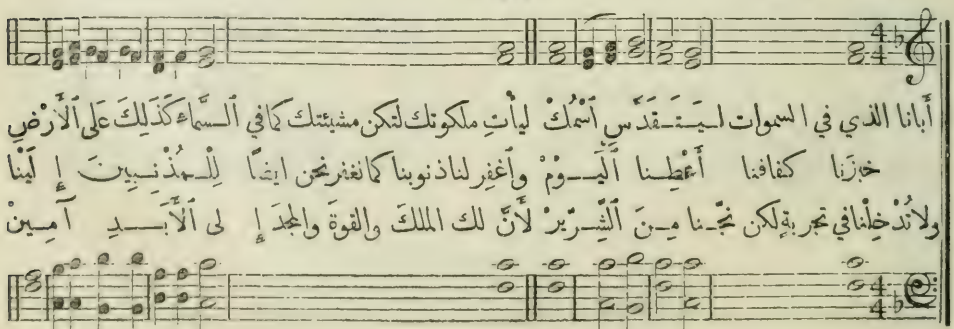 أَبانا الذي في السموات لـيَـتَـقَدَّسِ ٱسْمُكْ ليأْتِ ملكوتك لتكن مشيئتك كما في ٱلـسَّمَاءِ كَذٰلِكَ عَلَى ٱلْأَرْضِ
خبزَنا كفافنا أَعْطِـنا ٱلْيَـوْمْ وٱغفِر لنا ذنوبنا كما نغفر نحن ايضًا لِلْـمُذْنِـبِينَ إِلَيْنا
ولا تُدْخِلْنا في تجربةٍ لكن نَجِّـنا مِـنَ ٱلشِّـرِّيرْ لأَنَّ لك الملكَ والقوةَ والمجدَ إِلى ٱلْأَبَـدِ آمِـين